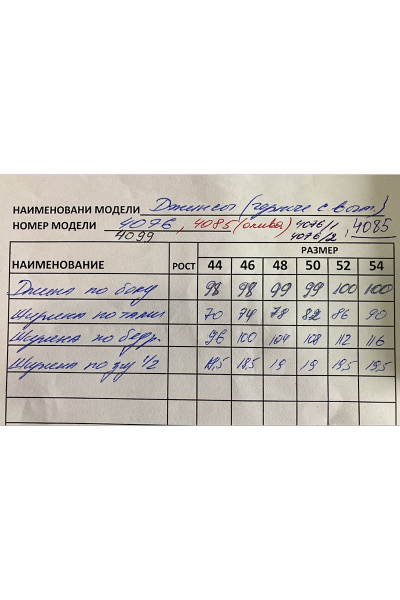 НАИМЕНОВАНИ МОДЕЛИ Джинсы (горячие с выт)
НОМЕР МОДЕЛИ 4076, 4085 (олива) 4076/1, 4085
4099 4076/2
РАЗМЕР
НАИМЕНОВАНИЕ РОСТ 44 46 48 50 52 54
Длина по боку 98 98 99 99 100 100
Ширина по талии 70 74 78 82 86 90
Ширина по бедр. 96 100 104 108 112 116
Ширина по низу 1/2 18,5 18,5 19 19 19,5 19,5